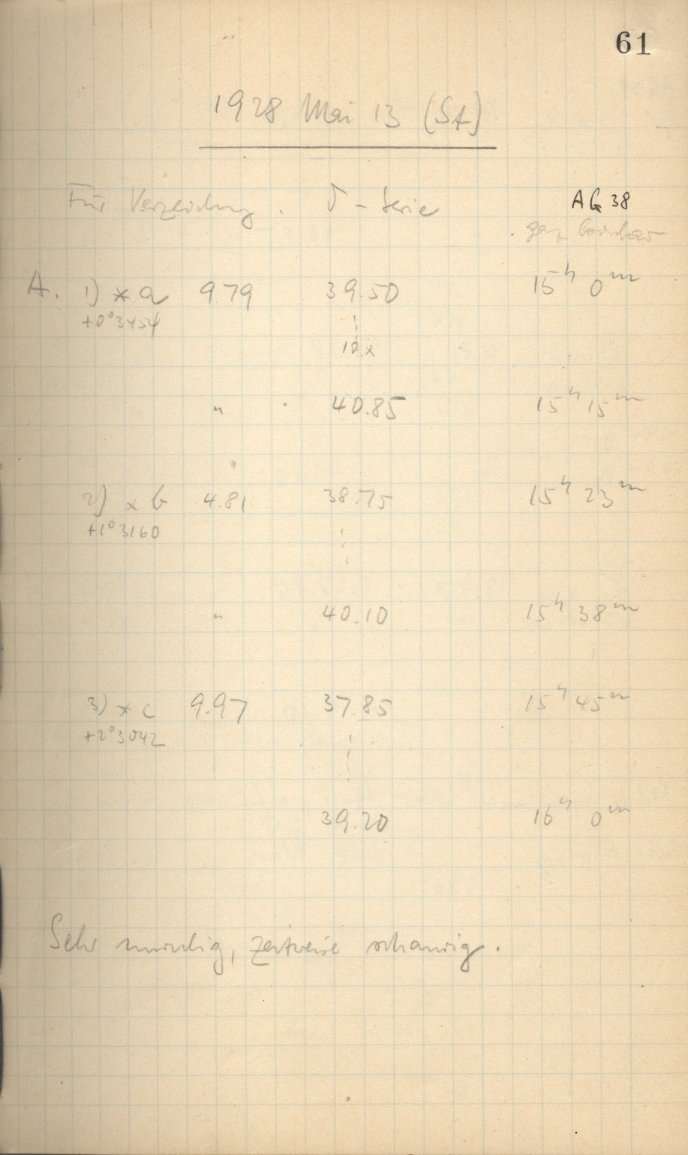 61
1928 Mai 13 (St)
Für Verzeichng. δ-Serie AG 38
ganz
A. 1) * a 9.79 39.50 15h 0m
+0° 3454
10x
" 40.85 15h 15m
2) * b 4.81 38.75 15h 23m
+1° 3160
" 40.10 15h 38m
3) * c 9.97 37.85 15h 45m
+2° 3042
39.20 16h 0m
Sehr unruhig, zeitweise schaurig.